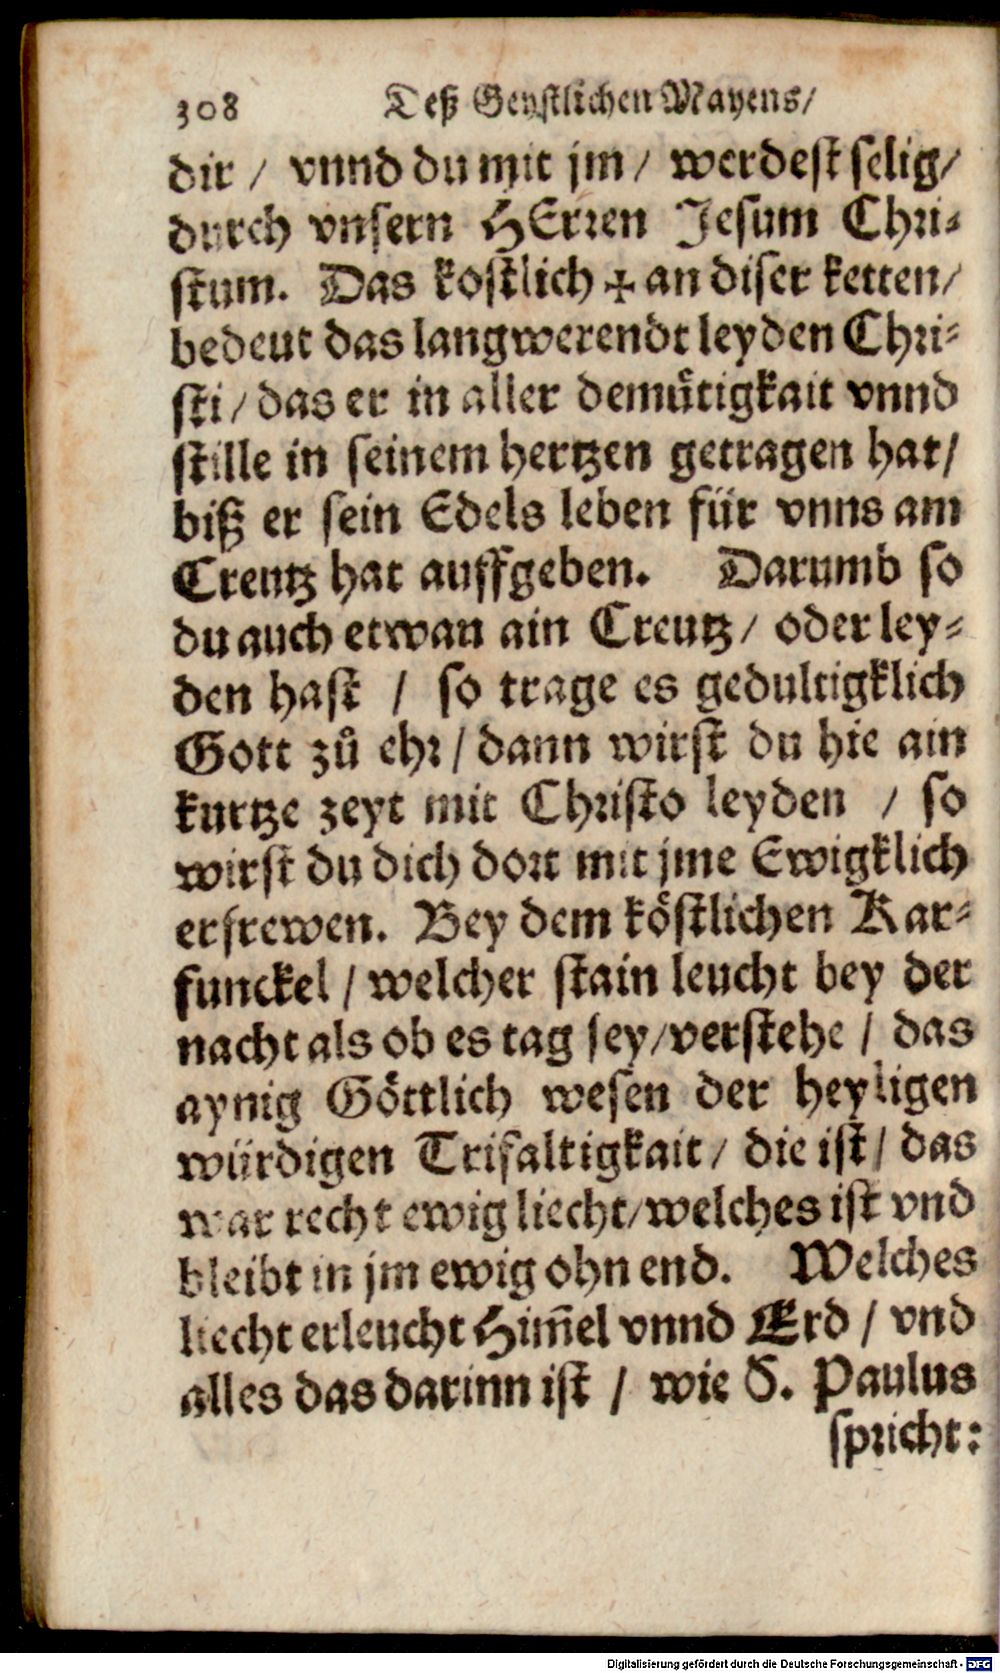 308 Deß Geystlichen Mayens/
dir / vnnd du mit jm / werdest selig/
durch vnsern HErren Jesum Chri-
stum. Das kostlich ✠ an diser ketten/
bedeut das langwerendt leyden Chri-
sti / das er in aller demuͤtigkait vnnd
stille in seinem hertzen getragen hat/
biß er sein Edels leben für vnns am
Creutz hat auffgeben. Darumb so
du auch etwan ain Creutz / oder ley-
den hast / so trage es gedultigklich
Gott zů ehr / dann wirst du hie ain
kurtze zeyt mit Christo leyden / so
wirst du dich dort mit jme Ewigklich
erfrewen. Bey dem köstlichen Kar-
funckel / welcher stain leucht bey der
nacht als ob es tag sey / verstehe / das
aynig Göttlich wesen der heyligen
würdigen Trifaltigkait / die ist / das
war recht ewig liecht / welches ist vnd
bleibt in jm ewig ohn end. Welches
liecht erleucht Him̃el vnnd Erd / vnd
alles das darinn ist / wie S. Paulus
spricht:
Digitalisierung gefördert durch die Deutsche Forschungsgemeinschaft - DFG